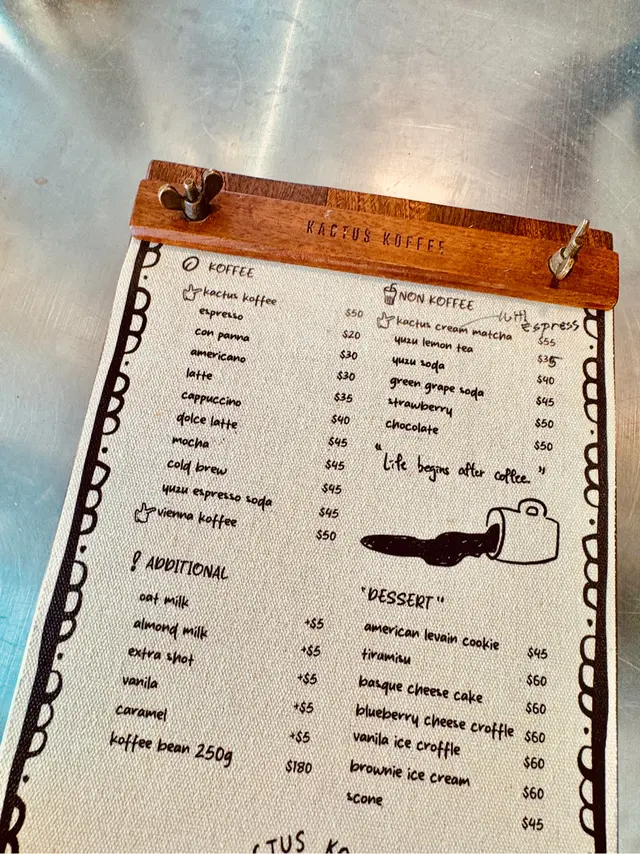 KACTUS KOFFEE
KOFFEE
kactus koffee $50
espresso $20
con panna $30
americano $30
latte $35
cappuccino $40
dolce latte $45
mocha $45
cold brew $45
yuzu espresso soda $45
vienna koffee $50
! ADDITIONAL
oat milk +$5
almond milk +$5
extra shot +$5
vanila +$5
caramel +$5
koffee bean 250g $180
NON KOFFEE
with espress
kactus cream matcha $55
yuzu lemon tea $35
yuzu soda $40
green grape soda $45
strawberry $50
chocolate $50
"Life begins after coffee."
"DESSERT"
american levain cookie $45
tiramisu $60
basque cheese cake $60
blueberry cheese croffle $60
vanila ice croffle $60
brownie ice cream $60
scone $45
CTUS KO